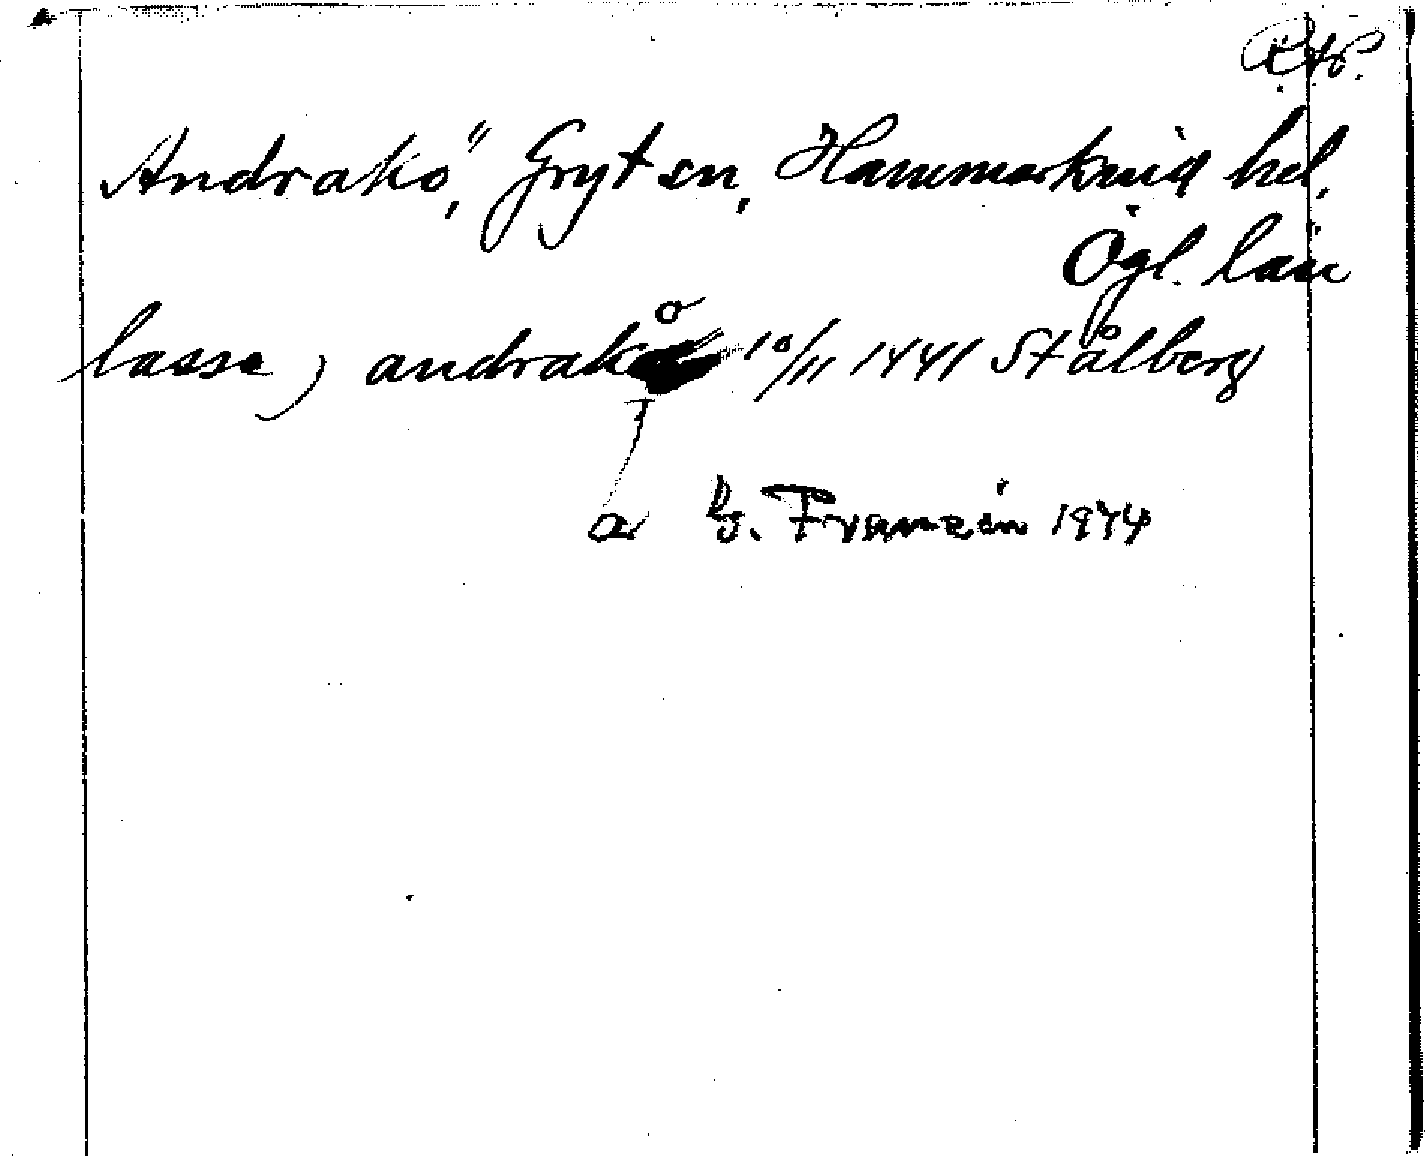 Andrakö, Gryt sn, Hammarkind hd.
Ögl. län
lasse ) andrak 10/11 1441 Stålberg
o
a G. Franzén 1974